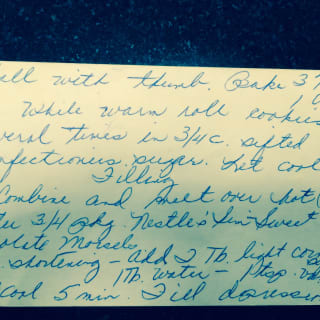 all with thumb. Bake 3
While warm roll cookies
eral times in 3/4 c. sifted
nfectioners sugar. Let cool
Filling
Combine and melt over hot
ter 3/4 pkg. Nestle's Semi-Sweet
olate Morsels
. shortening - add 2 Tb. light cor
1 Tb. water - 1 tsp. va
Cool 5 min. Fill depression